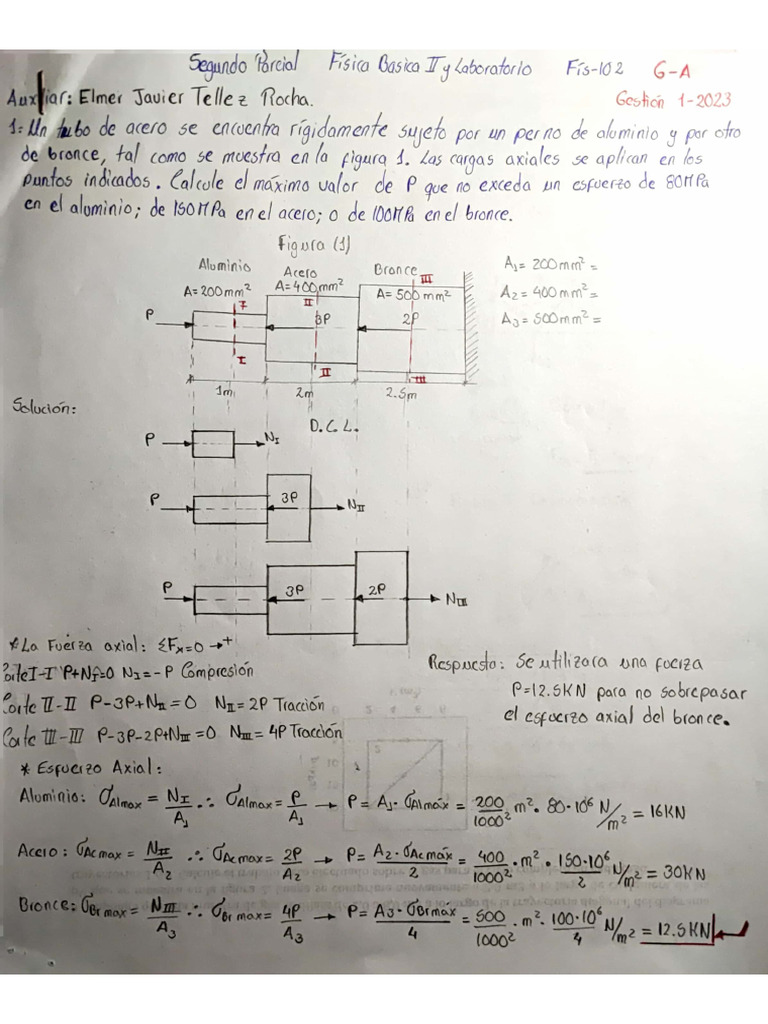 Segundo Parcial Física Basica II y Laboratorio Fís-102 G-A
Auxiliar: Elmer Javier Tellez Rocha. Gestión 1-2023
1: Un tubo de acero se encuentra rígidamente sujeto por un perno de aluminio y por otro
de bronce, tal como se muestra en la figura 1. Las cargas axiales se aplican en los
puntos indicados. Calcule el máximo valor de P que no exceda un esfuerzo de 80MPa
en el aluminio; de 150MPa en el acero; o de 100MPa en el bronce.
Figura (1)
Aluminio Acero Bronce
A=200mm² A=400mm² A=500mm²
A₁= 200mm²=
A₂= 400mm²=
A₃= 500mm²=
I II III
P 3P 2P
I II III
1m 2m 2.5m
Solución:
D.C.L.
P N_I
P 3P N_II
P 3P 2P N_III
*La Fuerza axial: ΣFx=0 →+
Corte I-I P+N_I=0 N_I=-P Compresión
Corte II-II P-3P+N_II=0 N_II=2P Tracción
Corte III-III P-3P-2P+N_III=0 N_III=4P Tracción
Respuesto: Se utilizara una fuerza
P=12.5KN para no sobrepasar
el esfuerzo axial del bronce.
* Esfuerzo Axial:
Aluminio: σAlmax = N_I/A₁ ∴ σAlmax = P/A₁ → P= A₁·σAlmáx = 200/1000² m²·80·10⁶ N/m² = 16KN
Acero: σAcmax = N_II/A₂ ∴ σAcmax = 2P/A₂ → P= A₂·σAcmáx/2 = 400/1000²·m²·150·10⁶/2 N/m² = 30KN
Bronce: σBrmax = N_III/A₃ ∴ σBrmax = 4P/A₃ → P= A₃·σBrmáx/4 = 500/1000²·m²·100·10⁶/4 N/m² = 12.5KN